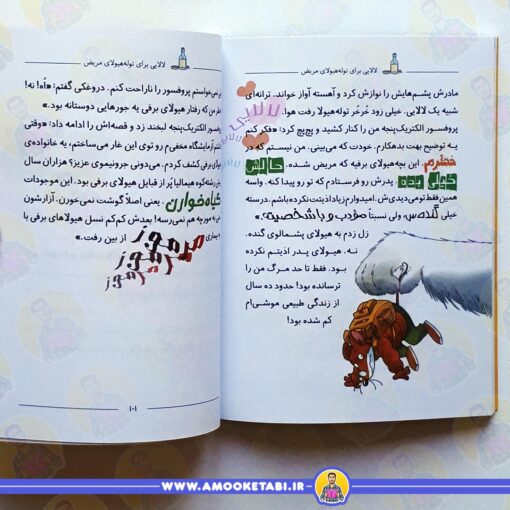 لالایی برای توله‌هیولای مریض
مادرش پشم‌هایش را نوازش کرد و آهسته آواز خواند. ترانه‌ای
شبیه یک لالایی. خیلی زود خُرخُر توله‌هیولا رفت هوا.
پروفسور الکتریک‌پنجه من را کنار کشید و پچ‌پچ کرد: «فکر کنم
یه توضیح بهت بدهکارم. خودت که می‌بینی. من نیستم که در
خطرم. این بچه‌هیولای برفیه که مریض شده. حالش
خیلی بده. پدرش رو فرستادم که تو رو پیدا کنه. واسه
همین فقط تو می‌دیدی‌ش. امیدوارم زیاد اذیتت نکرده باشم. درسته
خیلی گنده‌س ولی نسبتاً مؤدب و با شخصیته.»
زل زدم به هیولای پشمالوی گنده.
نه. هیولای پدر اذیتم نکرده
بود. فقط تا حد مرگ من را
ترسانده بود! حدود ده سال
از زندگی طبیعی موشی‌ام
کم شده بود!
لالایی
لالایی برای توله‌هیولای مریض
خواستم پروفسور را ناراحت کنم. دروغکی گفتم: «اُه! نه!
من که رفتار هیولای برفی یه جورهایی دوستانه بود.»
لبخند زد و قصه‌اش را ادامه داد: «وقتی
آزمایشگاه مخفی‌م رو توی این غار می‌ساختم، یه خانواده‌ی
برفی کشف کردم. می‌دونی جرونیموی عزیز؟ هزاران سال
رشته‌کوه هیمالیا پُر از قبایل هیولای برفی بود. این موجودات
گیاه‌خوارن. یعنی اصلاً گوشت نمی‌خورن. آزارشون
به مورچه هم نمی‌رسه! بعدش کم‌کم نسل هیولاهای برفی با
بیماری مرموز مرموز مرموز از بین رفت.»
۱۰۱
WWW.AMOOKETABI.IR